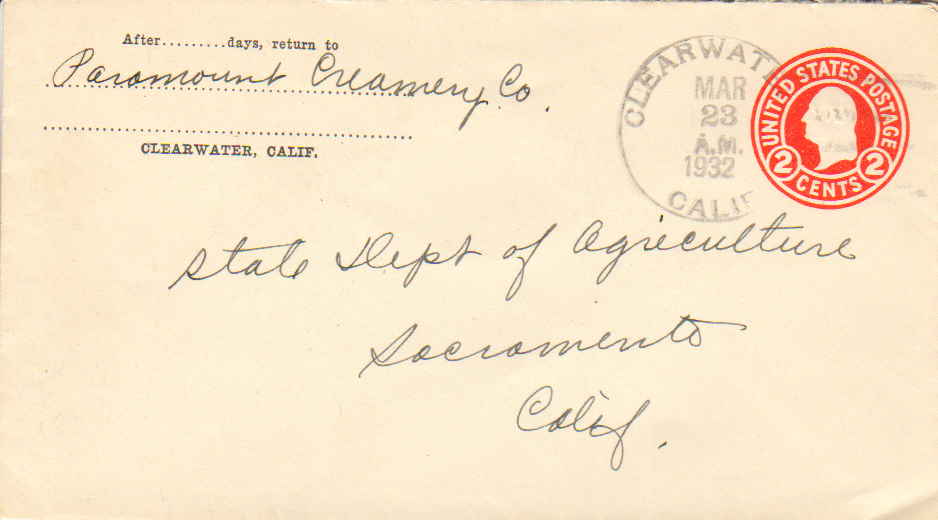 After.........days, return to
Paramount Creamery Co.
CLEARWATER, CALIF.
CLEARWAT
MAR
23
A.M.
1932
CALIF
UNITED STATES POSTAGE
2 CENTS 2
State Dept of Agriculture
Sacramento
Calif.